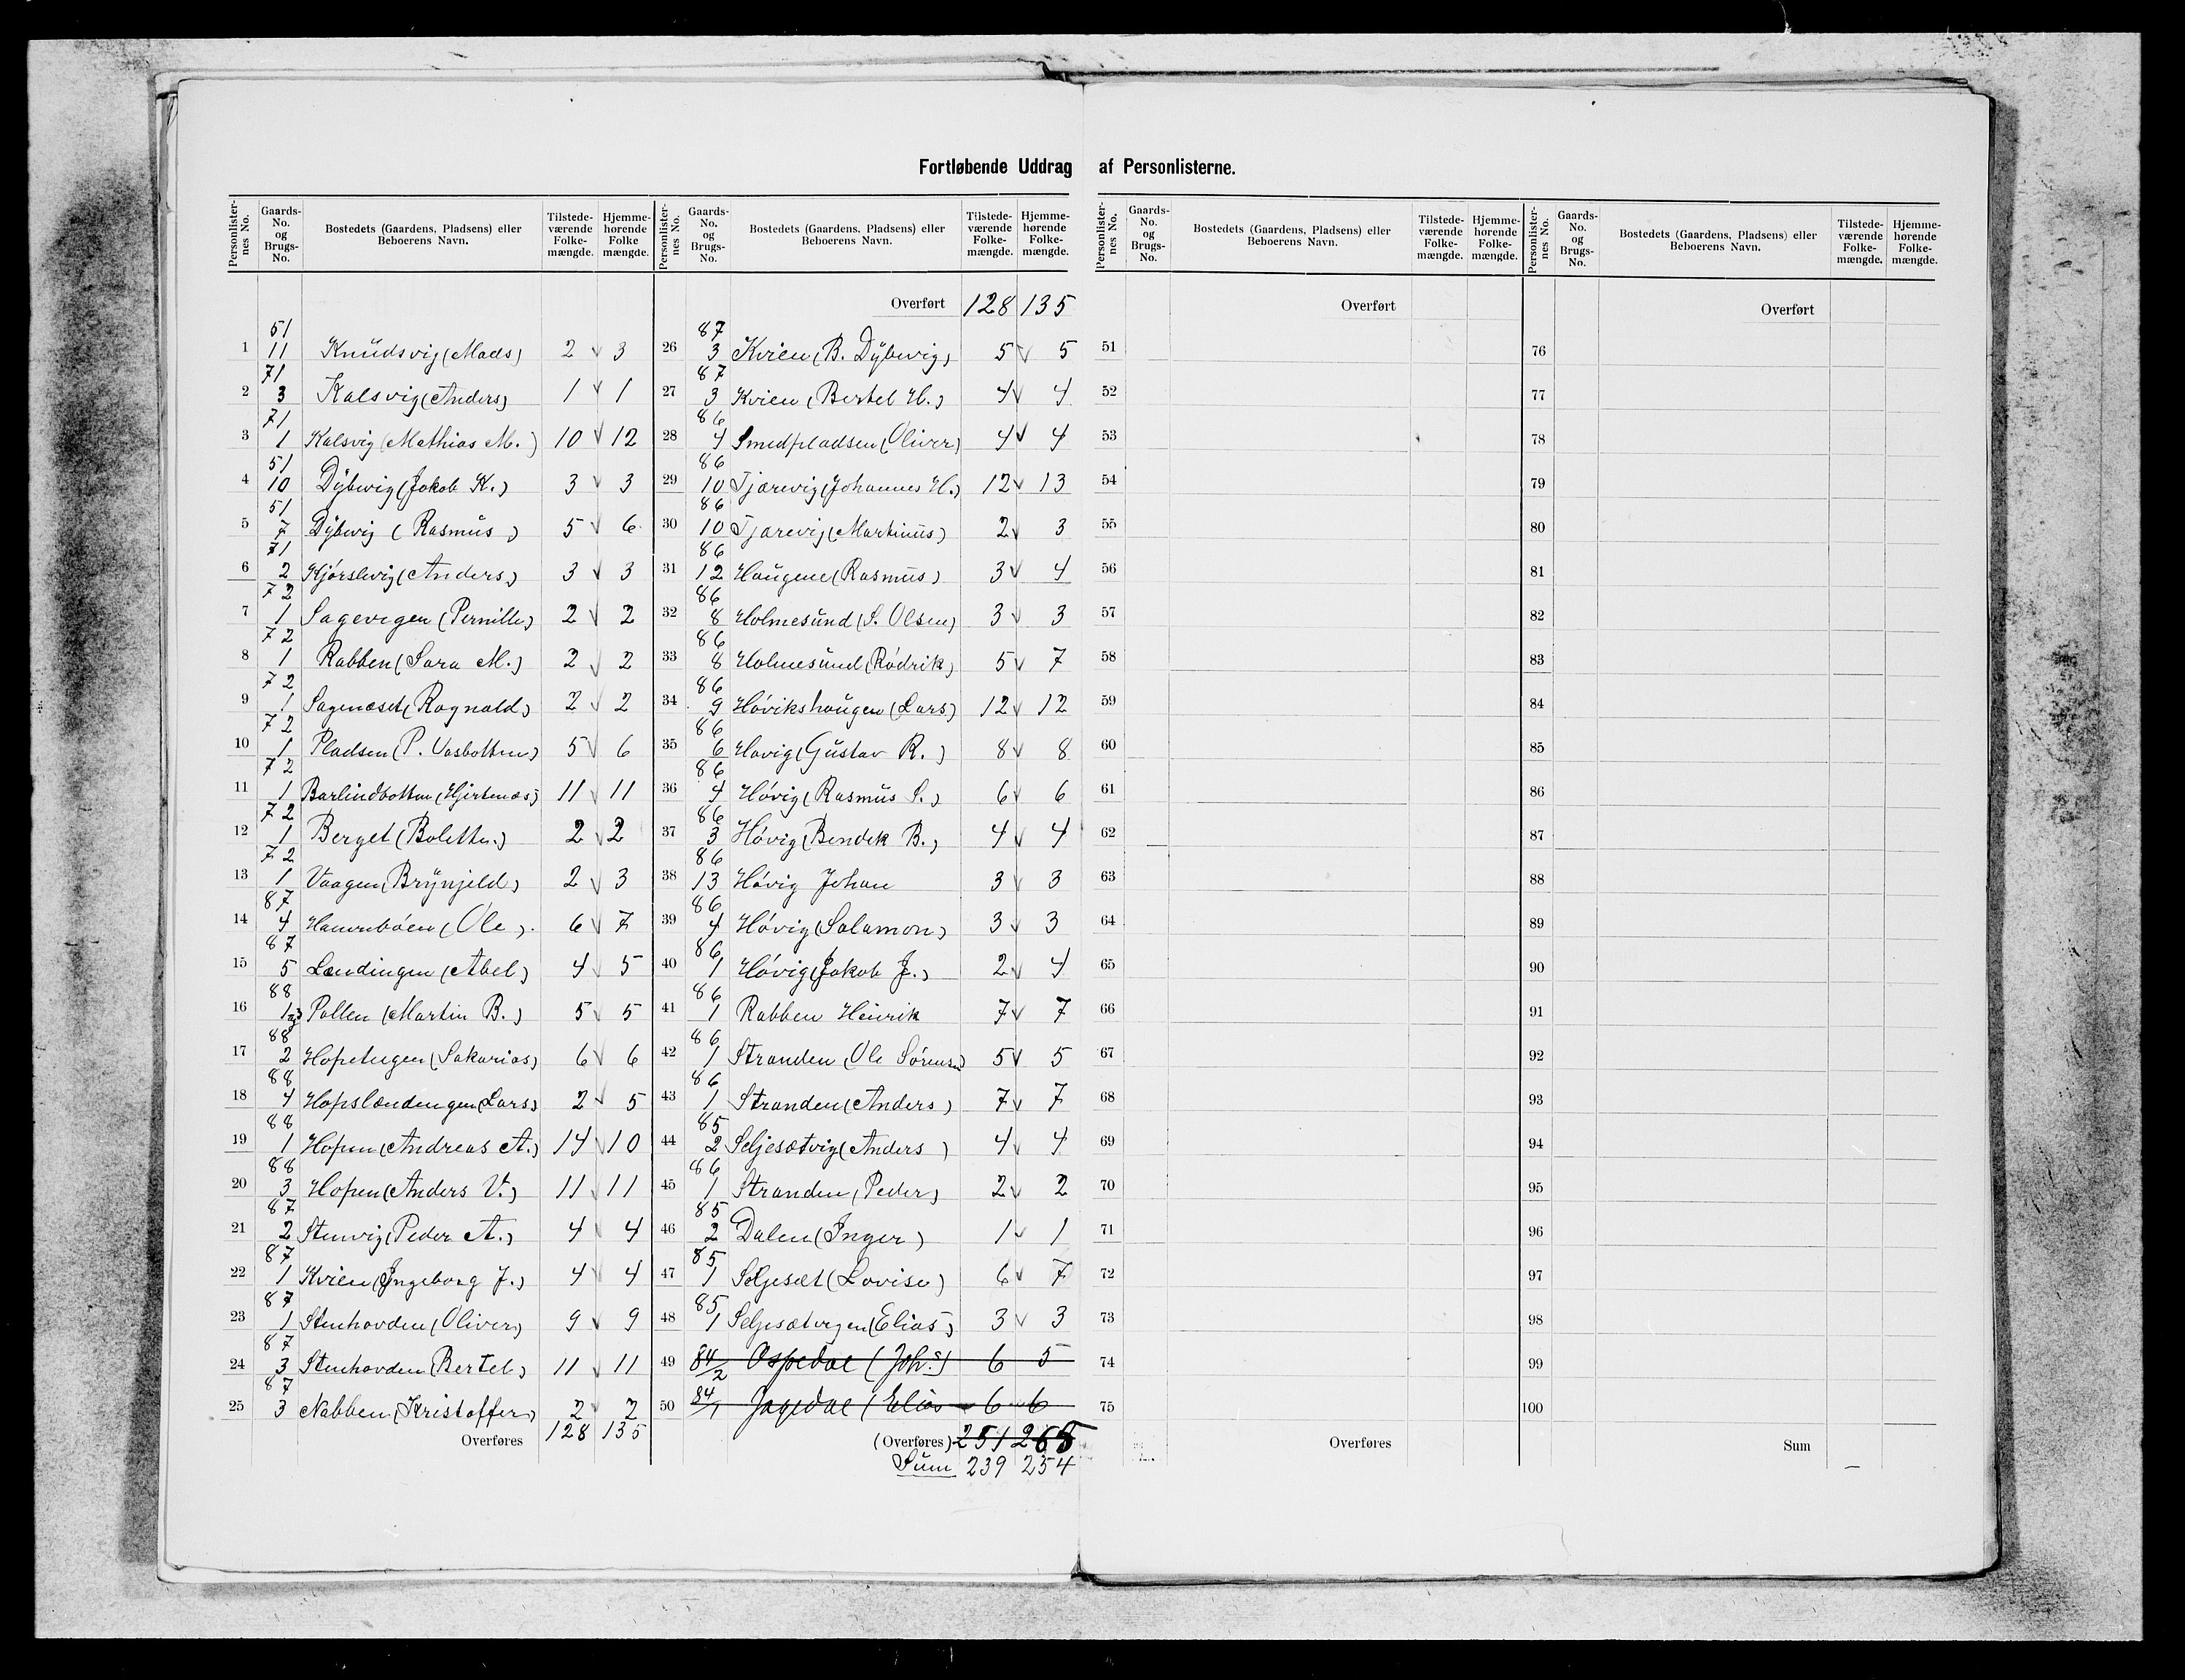 Fortløbende Uddrag af Personlisterne.
Personlister-nes No. | Gaards-No. og Brugs-No. | Bostedets (Gaardens, Pladsens) eller Beboerens Navn. | Tilstede-værende Folke-mængde. | Hjemme-hørende Folke mængde.
1 51 11 Knudsvig (Mads) 2 v 3
2 71 3 Kalsvig (Anders) 1 v 1
3 71 1 Kalsvig (Mathias M.) 10 v 12
4 51 10 Dybvig (Jakob K.) 3 v 3
5 51 7 Dybvig (Rasmus) 5 v 6
6 71 2 Kjørslvig (Anders) 3 v 3
7 72 1 Sagevigen (Pernille) 2 v 2
8 72 1 Rabben (Sara M.) 2 v 2
9 72 1 Sagenæset (Ragnald) 2 v 2
10 72 1 Pladsen (P. Vasbotten) 5 v 6
11 72 1 Barlindbotten (Hjertenæs) 11 v 11
12 72 1 Berget (Bolette.) 2 v 2
13 72 1 Vaagen (Brynjeld) 2 v 3
14 87 4 (Ole) 6 v 7
15 87 5 Lændingen (Abel) 4 v 5
16 88 1 Pollen (Martin B.) 5 v 5
17 88 2 (Sakarias) 6 v 6
18 88 4 Hopslændingen (Lars) 2 v 5
19 88 1 Hopen (Andreas A.) 14 v 10
20 88 3 Hopen (Anders V.) 11 v 11
21 87 2 Stenvig (Peder A.) 4 v 4
22 87 1 Kvien (Ingeborg J.) 4 v 4
23 87 1 Stenhovden (Oliver) 9 v 9
24 87 3 Stenhovden (Bertel) 11 v 11
25 87 3 Nabben (Kristoffer) 2 v 2
Overføres 128 135
Personlister-nes No. | Gaards-No. og Brugs-No. | Bostedets (Gaardens, Pladsens) eller Beboerens Navn. | Tilstede-værende Folke-mængde. | Hjemme-hørende Folke-mængde.
Overført 128 135
26 87 3 Kvien (B. Dybvig) 5 v 5
27 87 3 Kvien (Bertel H.) 4 v 4
28 86 4 Smedpladsen (Oliver) 4 v 4
29 86 10 Tjarevig (Johannes H.) 12 v 13
30 86 10 Tjarevig (Martinus) 2 v 3
31 86 12 Haugene (Rasmus) 3 v 4
32 86 8 Holmesund (S. Olsen) 3 v 3
33 86 8 Holmesund (Rødrik) 5 v 7
34 86 9 Høvikshaugen (Lars) 12 v 12
35 86 6 Høvig (Gustav R.) 8 v 8
36 86 4 Høvig (Rasmus S.) 6 v 6
37 86 3 Høvig (Bendik B.) 4 v 4
38 86 13 Høvig Johan 3 v 3
39 86 4 Høvig (Salamon) 3 v 3
40 86 1 Høvig (Jakob J.) 2 v 4
41 86 1 Rabben Henrik 7 v 7
42 86 1 Stranden (Ole Sørensen) 5 v 5
43 86 1 Stranden (Anders) 7 v 7
44 85 2 Seljesætvig (Anders) 4 v 4
45 86 1 Stranden (Peder) 2 v 2
46 85 2 Dalen (Inger) 1 v 1
47 85 1 Seljesæt (Lovise) 6 v 7
48 85 1 Seljesætvigen (Elias) 3 v 3
49 84/2 Ospedal (Johs.) 6 5
50 84/1 Jagedal (Elias 6 6
(Overføres) 251 265
Sum 239 254
Personlister-nes No. | Gaards-No. og Brugs-No. | Bostedets (Gaardens, Pladsens) eller Beboerens Navn. | Tilstede-værende Folke-mængde. | Hjemme-hørende Folke-mængde.
Overført
51
52
53
54
55
56
57
58
59
60
61
62
63
64
65
66
67
68
69
70
71
72
73
74
75
Overføres
Personlister-nes No. | Gaards-No. og Brugs-No. | Bostedets (Gaardens, Pladsens) eller Beboerens Navn. | Tilstede-værende Folke-mængde. | Hjemme-hørende Folke-mængde.
Overført
76
77
78
79
80
81
82
83
84
85
86
87
88
89
90
91
92
93
94
95
96
97
98
99
100
Sum